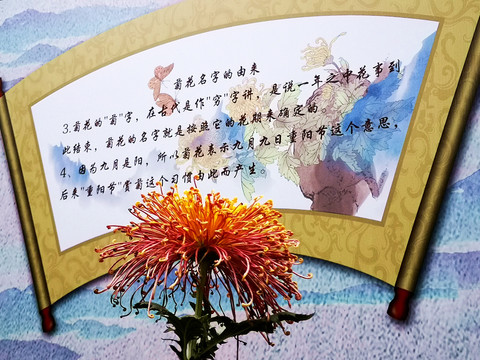 菊花名字的由来
3.菊花的"菊"字，在古代是作"穷"字讲，是说一年之中花事到
此结束，菊花的名字就是按照它的花期来确定的
4、因为九月是阳，所以菊花表示九月九日重阳节这个意思，
后来"重阳节"赏菊这个习惯由此而产生。